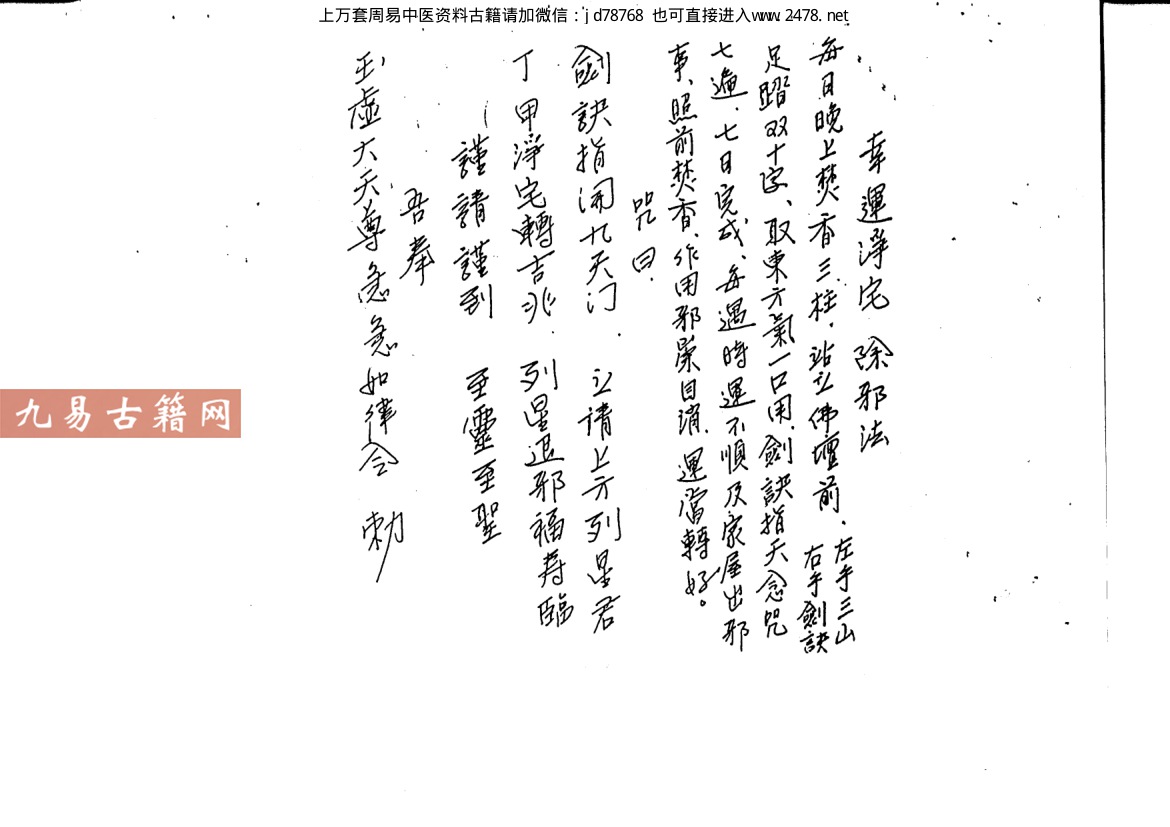 上万套周易中医资料古籍请加微信：jd78768 也可直接进入www.2478.net
幸運淨宅 除邪法
每日晚上焚香三柱．站立佛壇前．左手三山 右手劍訣
足躍双十字、取東方氣一口用．劍訣指天念咒
七遍．七日完成、每遇時運不順及家屋出邪
事、照前焚香．作用邪祟自消．運當轉好。
咒曰．
劍訣指開九天门．立请上方列星君
丁甲淨宅轉吉兆．列星退邪福寿臨
謹請謹到 至靈至聖
吾奉
玉虛大天尊急急如律令 勅
九易古籍网